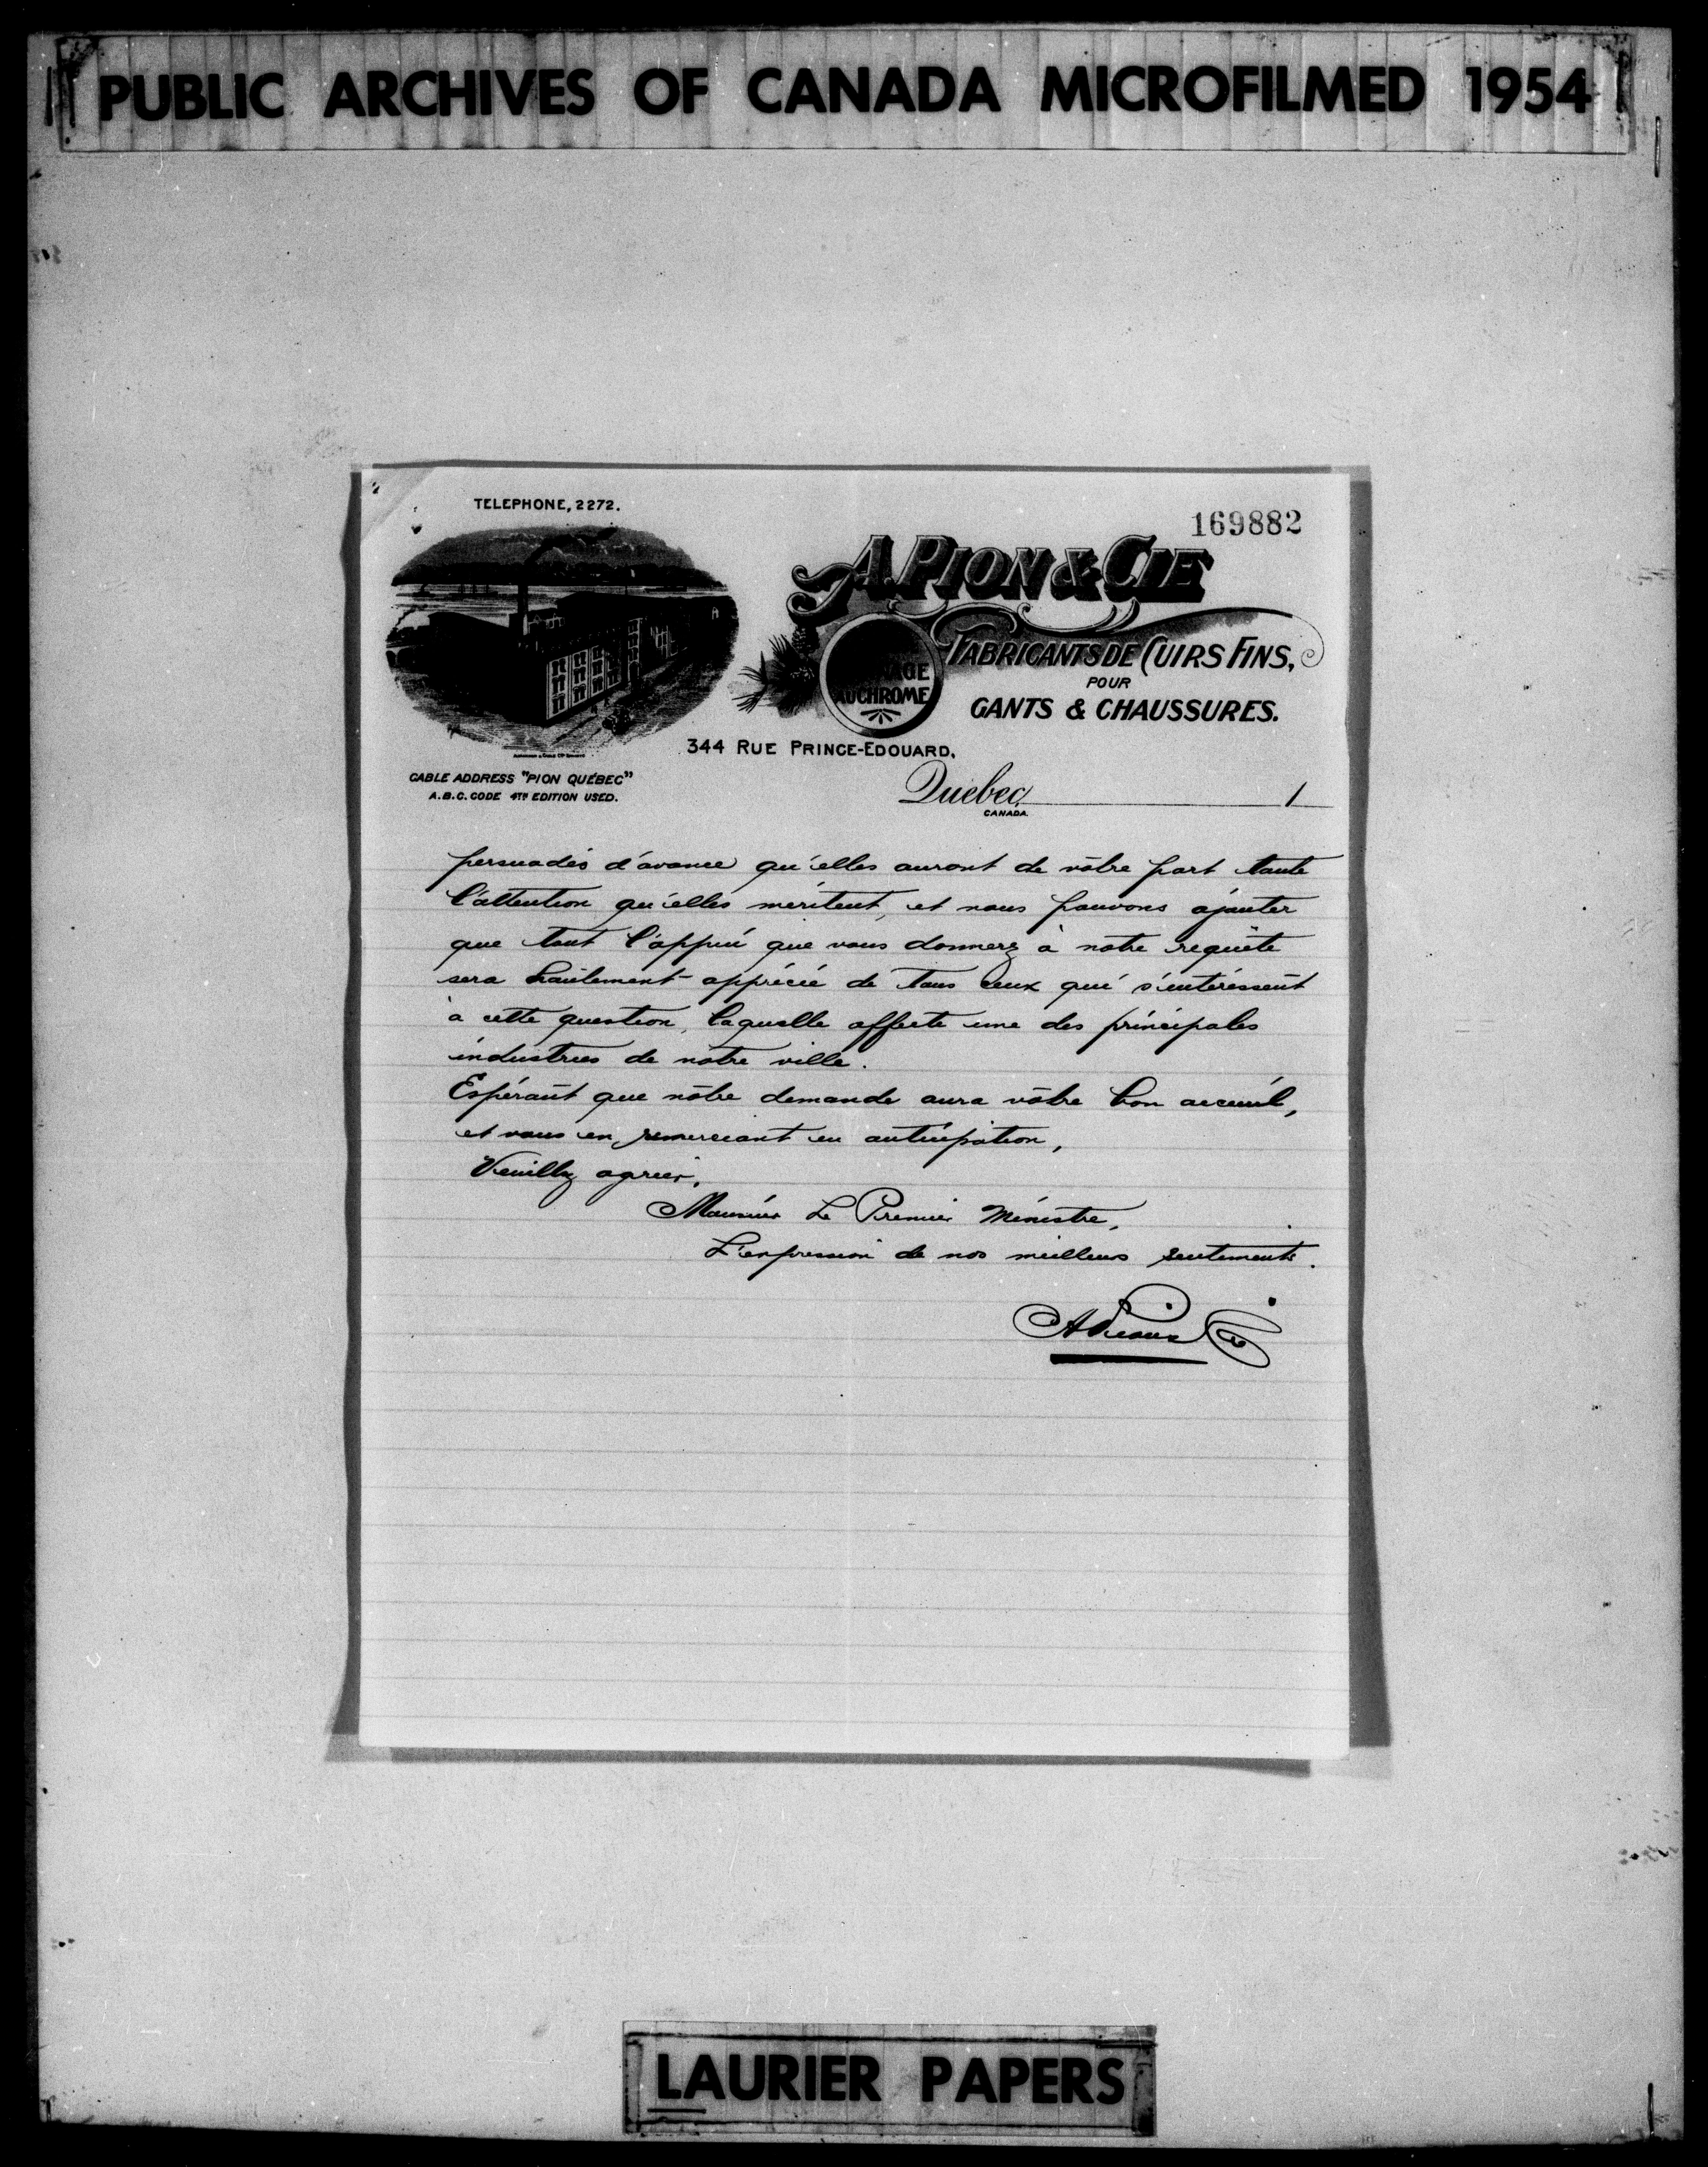 PUBLIC ARCHIVES OF CANADA MICROFILMED 1954
TELEPHONE, 2272.
169882
A. PION & CIE
FABRICANTS DE CUIRS FINS,
POUR
GANTS & CHAUSSURES.
AUCHROME
344 RUE PRINCE-EDOUARD.
CABLE ADDRESS "PION QUÉBEC"
A.B.C. CODE 4TH EDITION USED.
Québec, 1
CANADA.
persuadés d'avance qu'elles auront de vôtre part toute
l'attention qu'elles méritent, et nous pouvons ajouter
que tout l'appui que vous donnerez à notre requête
sera hautement apprécié de tous ceux qui s'intéressent
à cette question, laquelle affecte une des principales
industries de notre ville.
Espérant que nôtre demande aura vôtre bon accueil,
et vous en remerciant en anticipation,
Veuillez agréer,
Monsieur Le Premier Ministre,
L'expression de nos meilleurs sentiments.
A Pion & Cie
LAURIER PAPERS